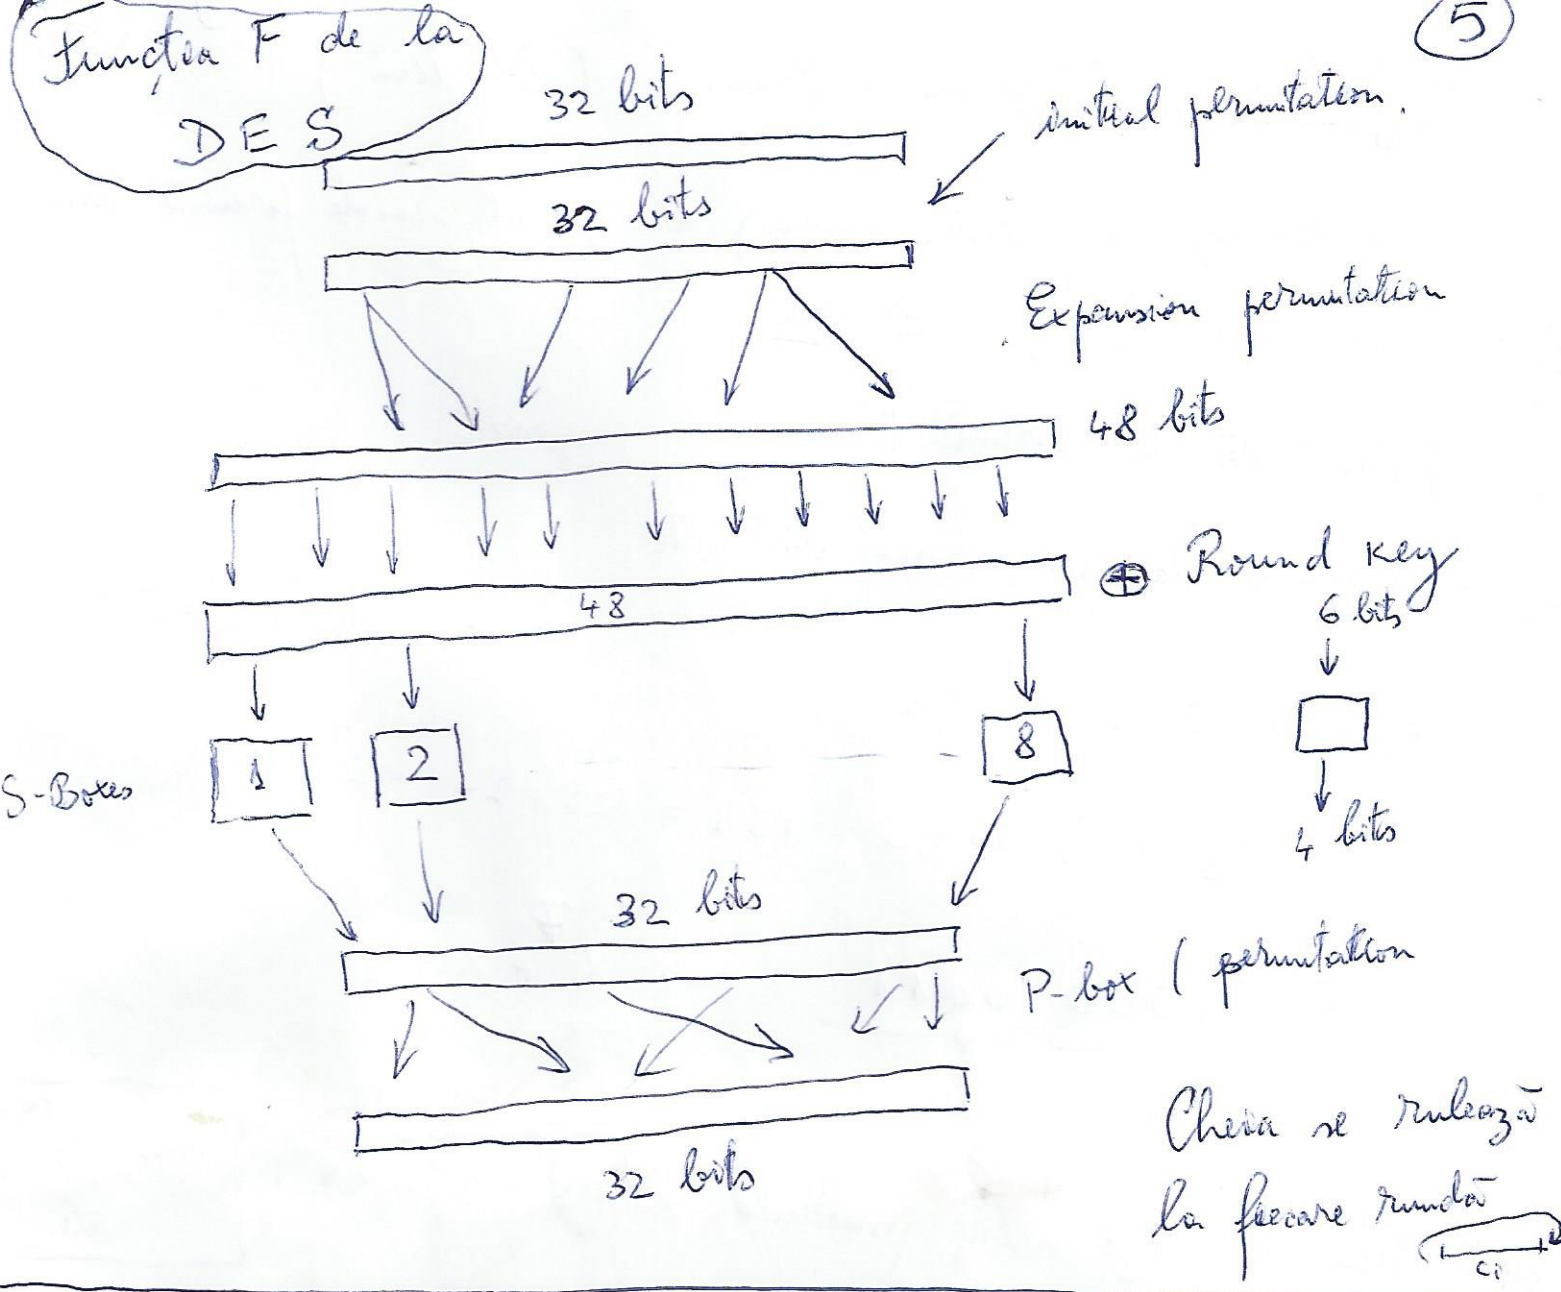 Funcția F de la
DES
5
32 bits
initial permutation.
32 bits
Expansion permutation
48 bits
⊕ Round key
48
6 bits
S-Boxes
1
2
8
4 bits
32 bits
P-box / permutation
32 bits
Cheia se rulează
la fiecare rundă